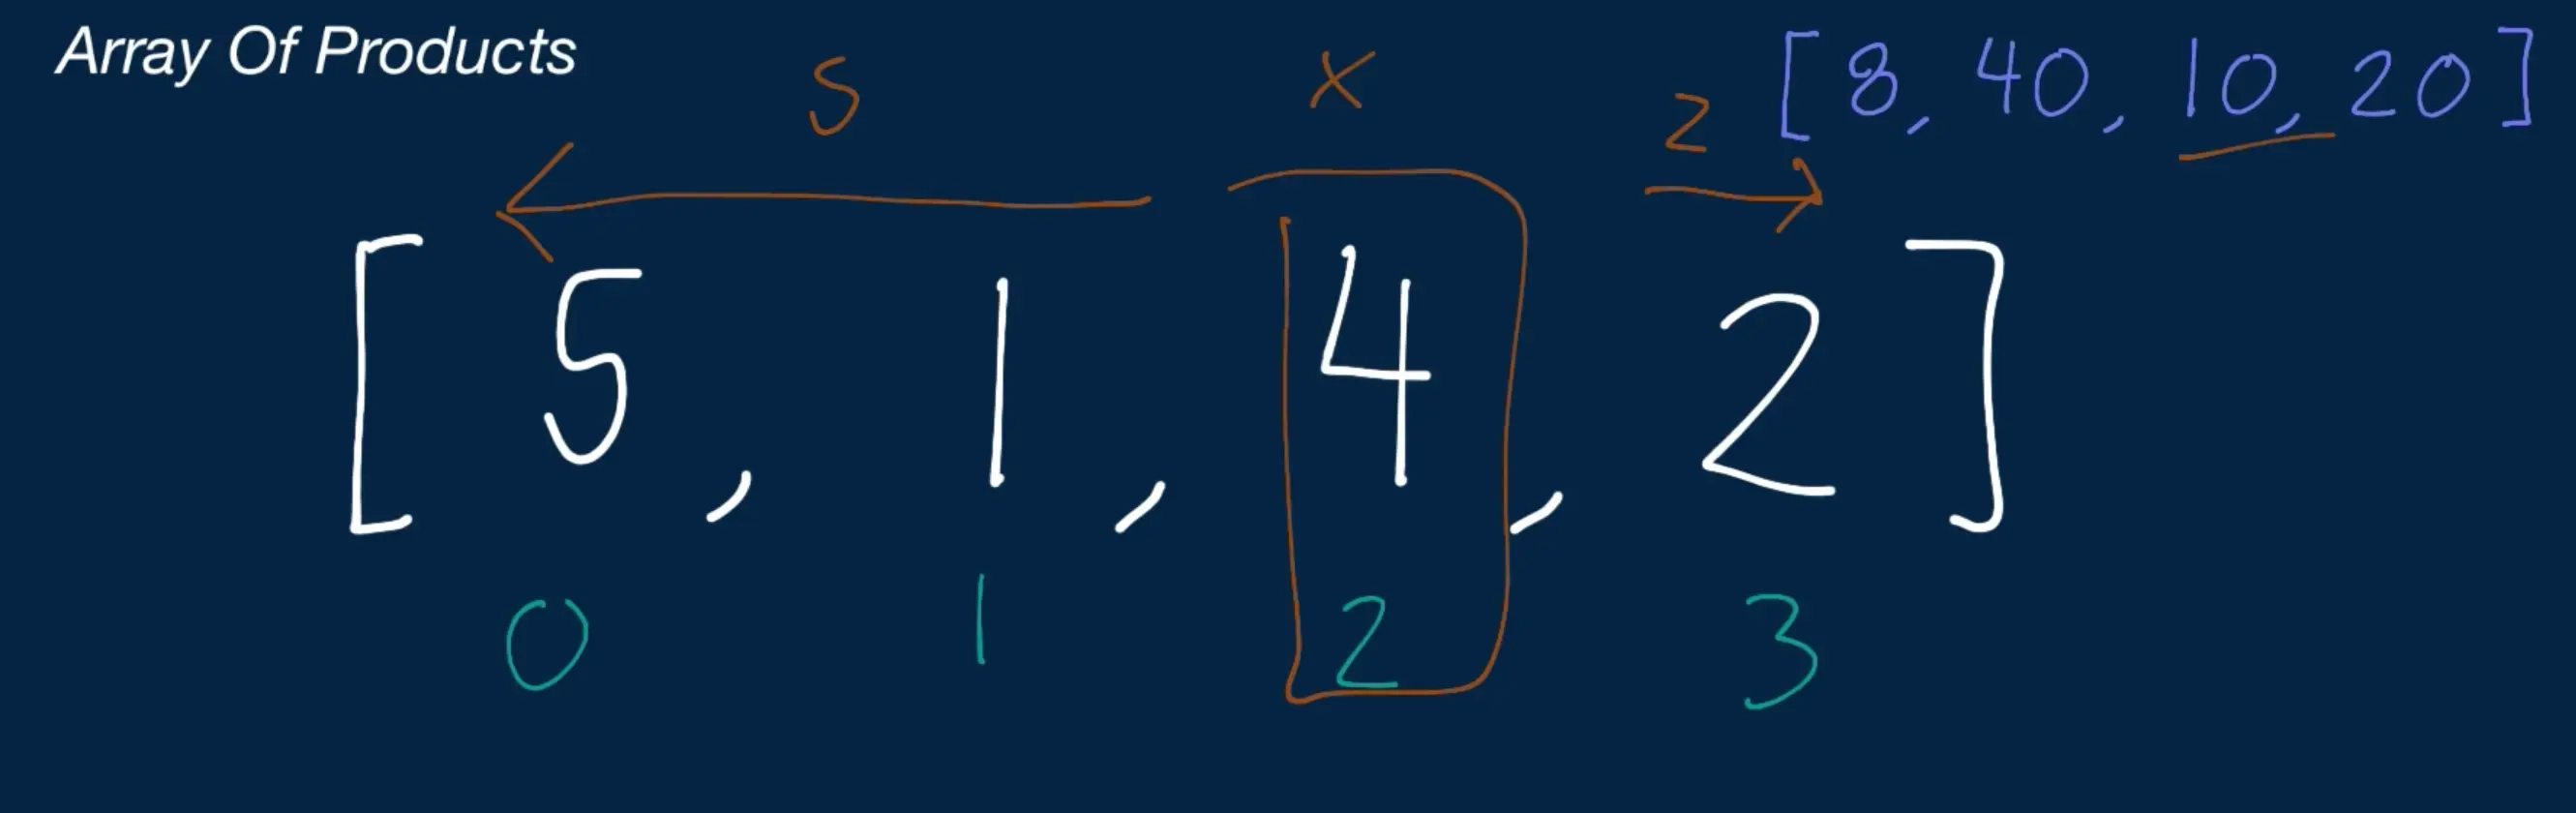 Array Of Products
5 x 2 [8, 40, 10, 20]
[5, 1, 4, 2]
0 1 2 3